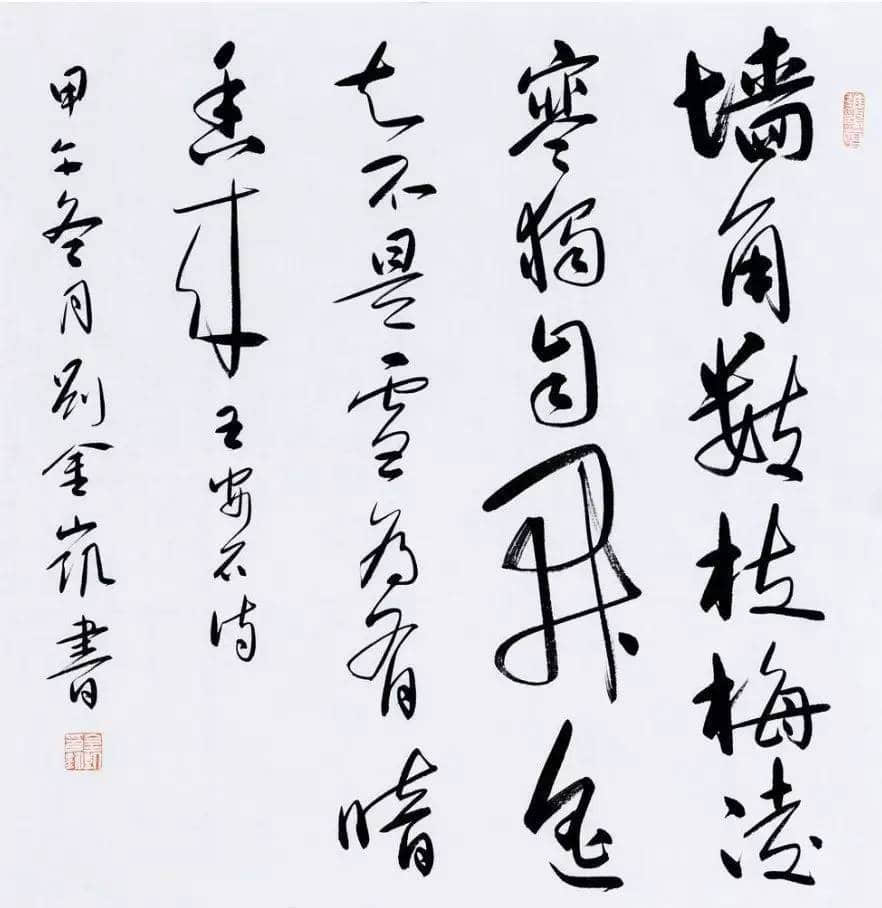 墙角数枝梅凌
寒独自开遥
知不是雪为有暗
香来 王安石诗
甲午冬月劉金凯書